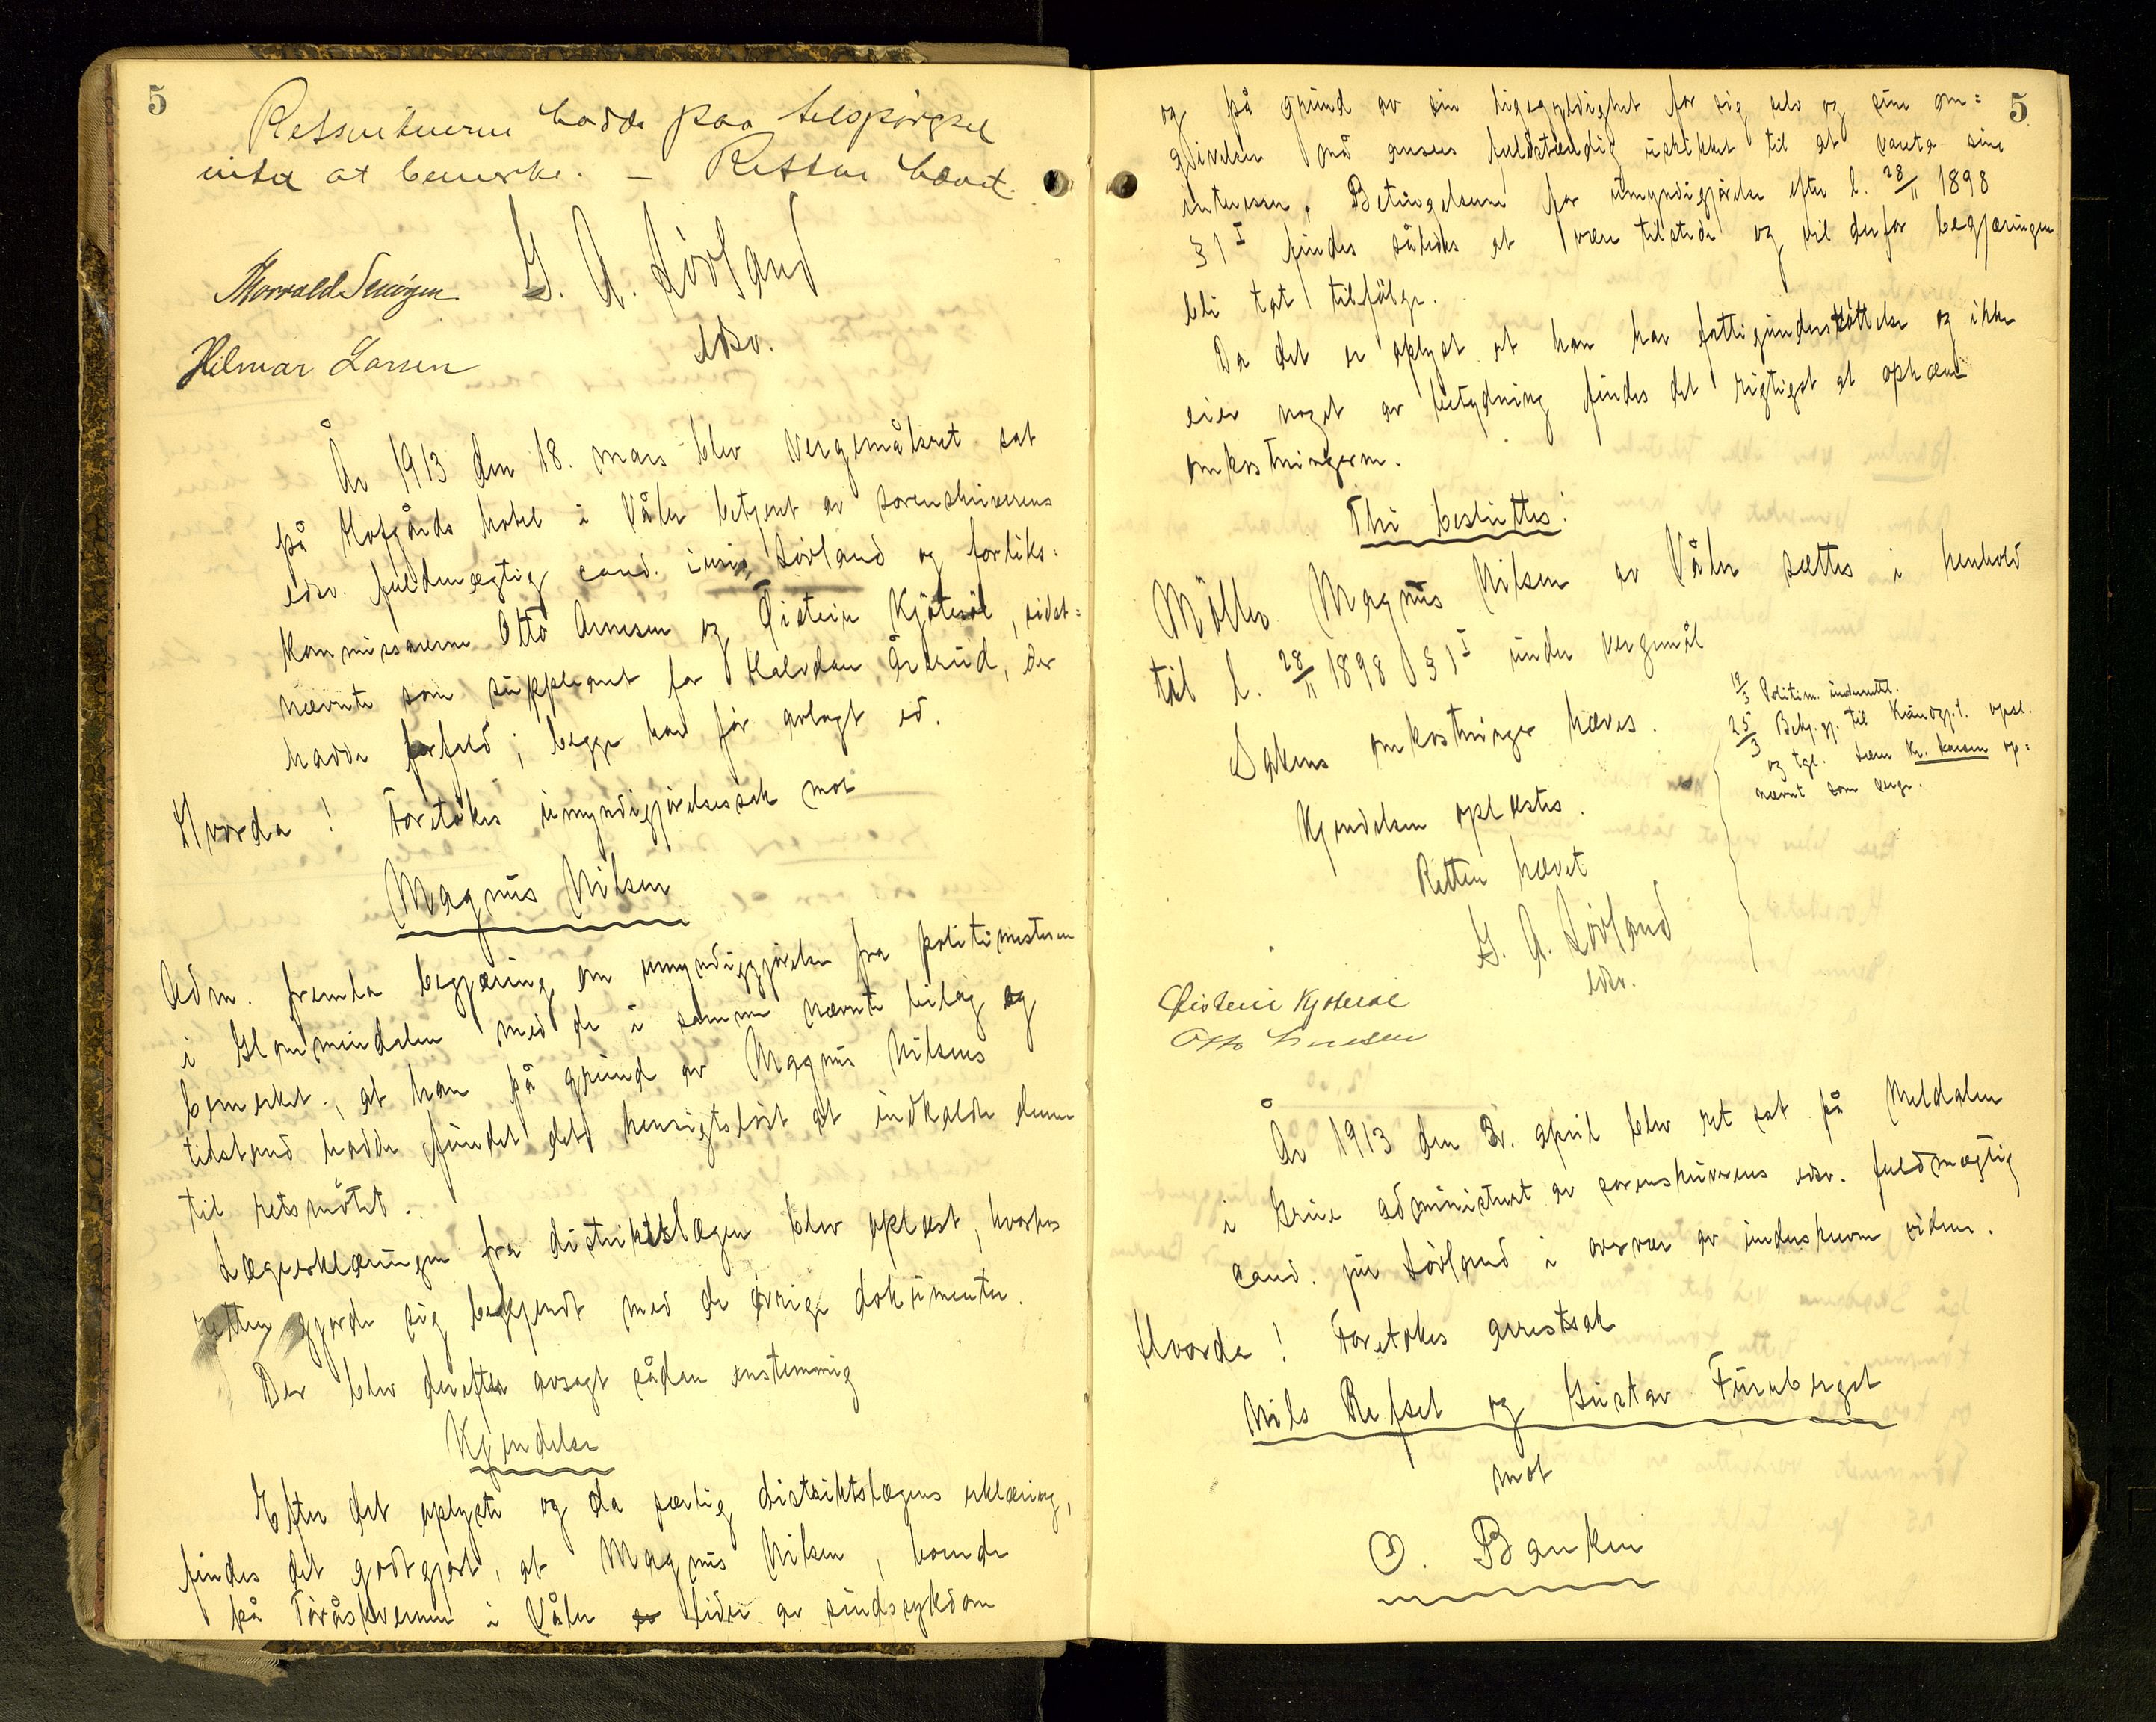 5
Retsvitnerne hadde paa tilspørgsel
intet at bemerke. – Retten hævet.
G. A. Lövland
edsv.
Thorvald
Hilmar Larsen
År 1913 den 18. mars blev vergemålsret sat
på Hofgårds hotel i Våler betjent av sorenskriverens
edsv. fuldmægtig cand. iuris Lövland og forliks=
kommissærerne Otto Arnesen og Öistein Kjöteröl, sidst=
nævnte som suppleant for Halvdan Årerud, der
hadde forfald; begge har för avlagt ed.
Hvorda! Foretokes umyndiggjörelsessak mot
Magnus Nilsen
Adm. fremla begjæring om umyndiggjörelse fra politimesteren
i Glommendalen med de i samme nævnte bilag og
bemerket, at han på grund av Magnus Nilsens
tilstand hadde fundet det hensigtslöst at indkalde denne
til retsmötet.
Lægeerklæringen fra distriktslægen blev oplæst, hvorhos
retten gjorde sig bekjendt med de övrige dokumenter.
Der blev derefter avsagt sådan enstemmig
Kjendelse
Efter det oplyste og da særlig distriktslægens erklæring,
findes det godtgjort, at Magnus Nilsen, boende
på Toråskvernen i Våler lider av sindssykdom
5
og på grund av sin ligegyldighet for sig selv og sine om=
givelser må ansees fuldstændig uskikket til at vareta sine
interesser. Betingelserne for umyndiggjörelse efter l. 28/11 1898
§ 1 I findes således at være tilstede og vil derfor begjæringen
bli tat tilfölge.
Da det er oplyst at han har fattigunderstöttelse og ikke
eier noget av betydning findes det rigtigst at ophæve
omkostningerne.
Thi besluttes:
Möller Magnus Nilsen av Våler sættes i henhold
til l. 28/11 1898 § 1 I under vergemål
Sakens omkostninger hæves.
Kjendelsen oplæstes.
Retten hævet
G. A. Lövland
edsv.
19/3 Politim. underrettet.
25/3 Bekj. gj. til Kundgj.t. opsl.
og tgl. Kr. Larsen op=
nævnt som verge.
Öistein Kjöteröl
Otto Arnesen
År 1913 den 3. april blev ret sat på Meldalen
i Grue administrert av sorenskriverens edsv. fuldmægtig
cand. jur Lövland i overvær av underskrevne vidner.
Hvorda! Foretokes arrestsak
Nils Refset og Gustav Furuberget
mot
O. Banken